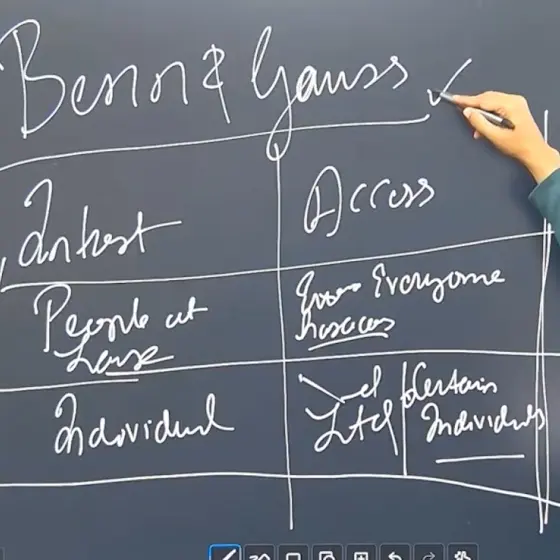 Benn & Gauss
Interest
Access
People at
Large
Everyone
has access
Individual
Ltd
Certain
Individuals